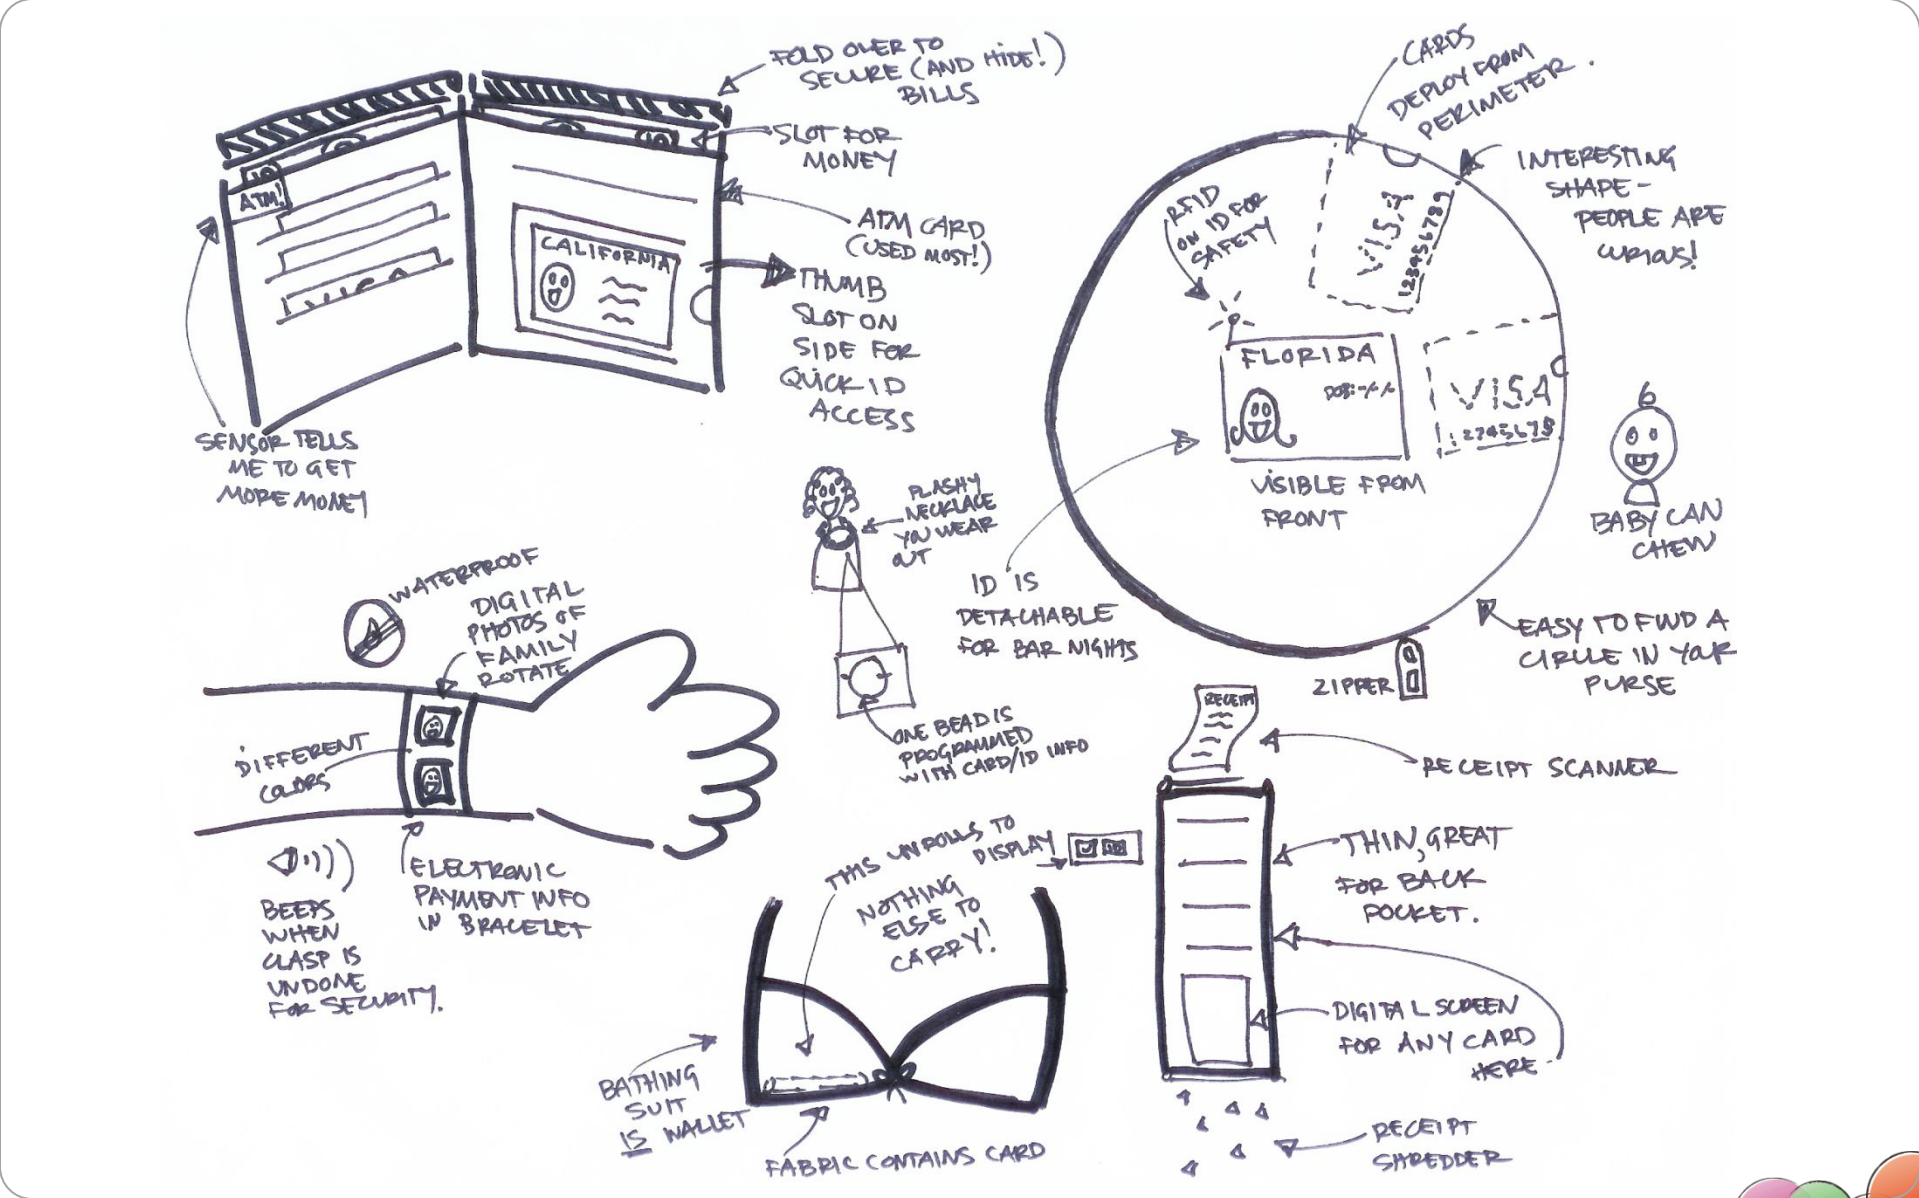 FOLD OVER TO
SECURE (AND HIDE!)
BILLS
SLOT FOR
MONEY
ATM CARD
(USED MOST!)
THUMB
SLOT ON
SIDE FOR
QUICK ID
ACCESS
10
10
ATM!
VISA
CALIFORNIA
SENSOR TELLS
ME TO GET
MORE MONEY
CARDS
DEPLOY FROM
PERIMETER.
INTERESTING
SHAPE-
PEOPLE ARE
CURIOUS!
RFID
ON ID FOR
SAFETY
VISA
123456789
FLORIDA
DOB:
VISA
12345678
VISIBLE FROM
FRONT
BABY CAN
CHEW
ID IS
DETACHABLE
FOR BAR NIGHTS
EASY TO FIND A
CIRCLE IN YOUR
PURSE
ZIPPER
FLASHY
NECKLACE
YOU WEAR
OUT
ONE BEAD IS
PROGRAMMED
WITH CARD/ID INFO
WATERPROOF
DIGITAL
PHOTOS OF
FAMILY
ROTATE
DIFFERENT
COLORS
ELECTRONIC
PAYMENT INFO
IN BRACELET
BEEPS
WHEN
CLASP IS
UNDONE
FOR SECURITY.
THIS UNROLLS TO
DISPLAY
NOTHING
ELSE TO
CARRY!
BATHING
SUIT
IS WALLET
FABRIC CONTAINS CARD
RECEIPT
RECEIPT SCANNER
THIN, GREAT
FOR BACK
POCKET.
DIGITAL SCREEN
FOR ANY CARD
HERE
RECEIPT
SHREDDER